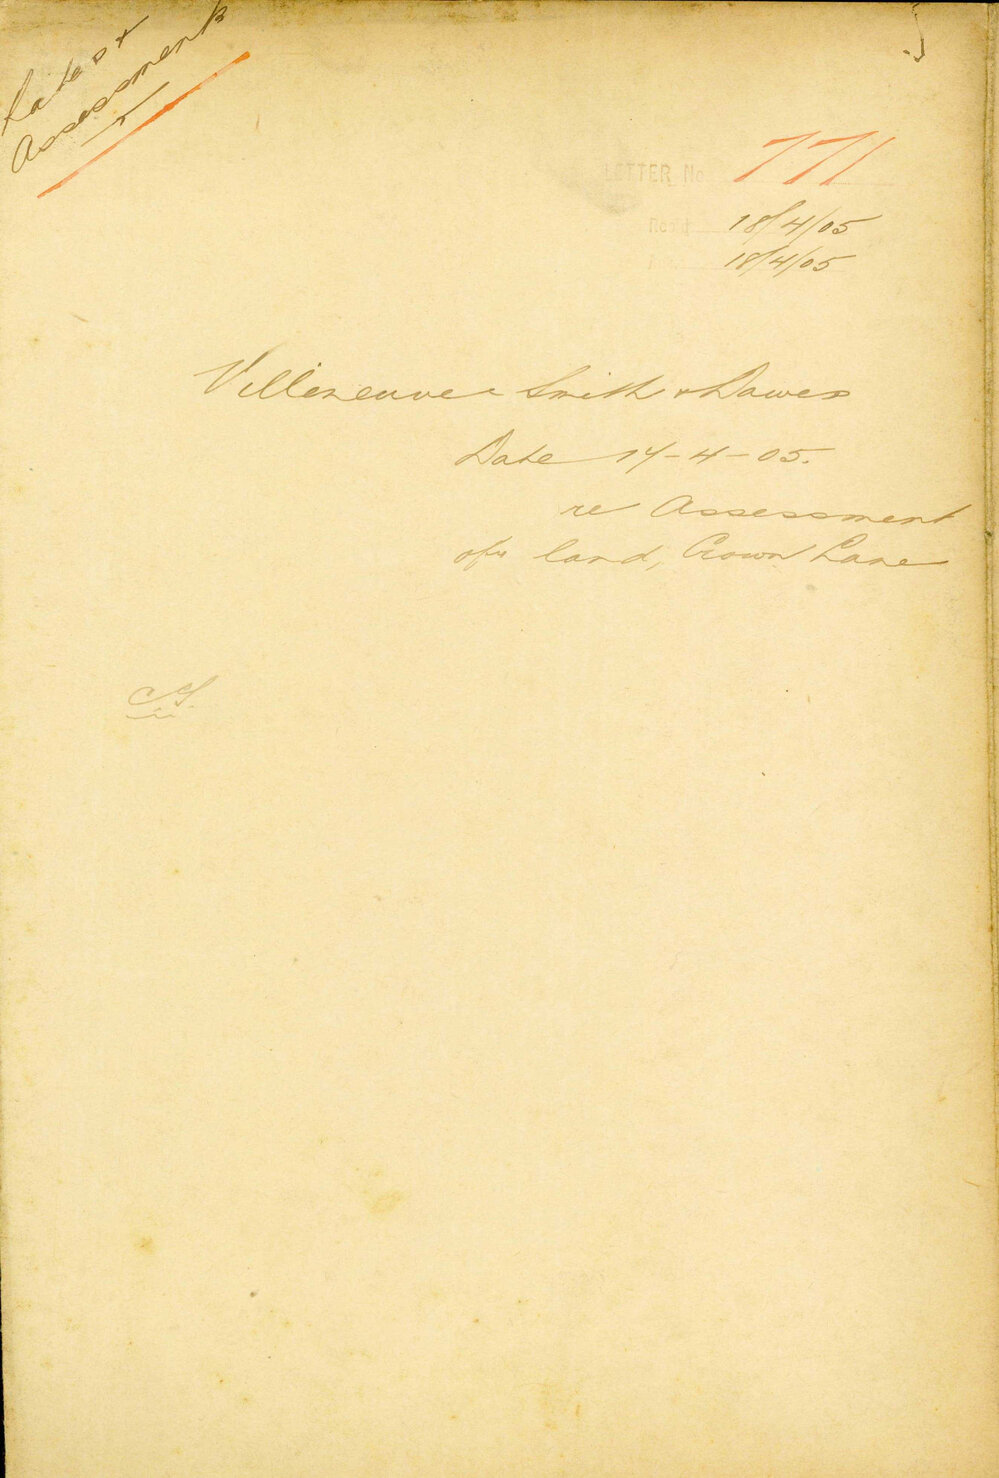 Rates &
Assessments
LETTER No 771
Rec'd 18/4/05
18/4/05
Villeneuve Smith & Dawes
Date 17-4-05.
re Assessment
of land, Crown Lane